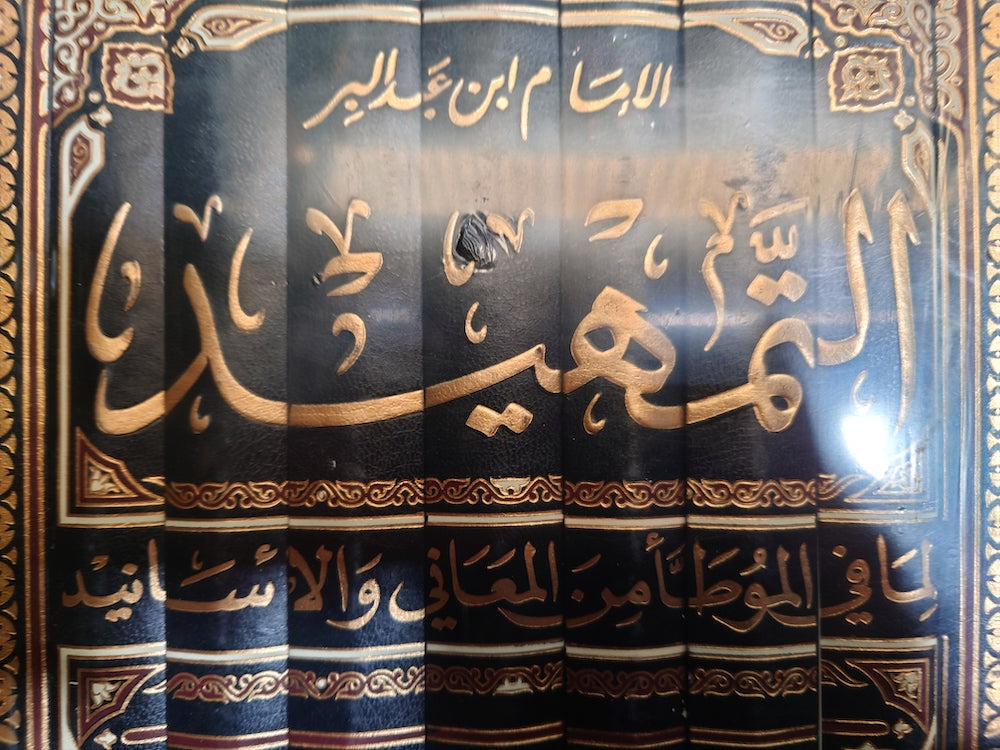 الإمَام ابن عَبد البر
التَّمهيد
لِمَا في المُوطَّأ مِنَ المعَاني وَالأسَانيد